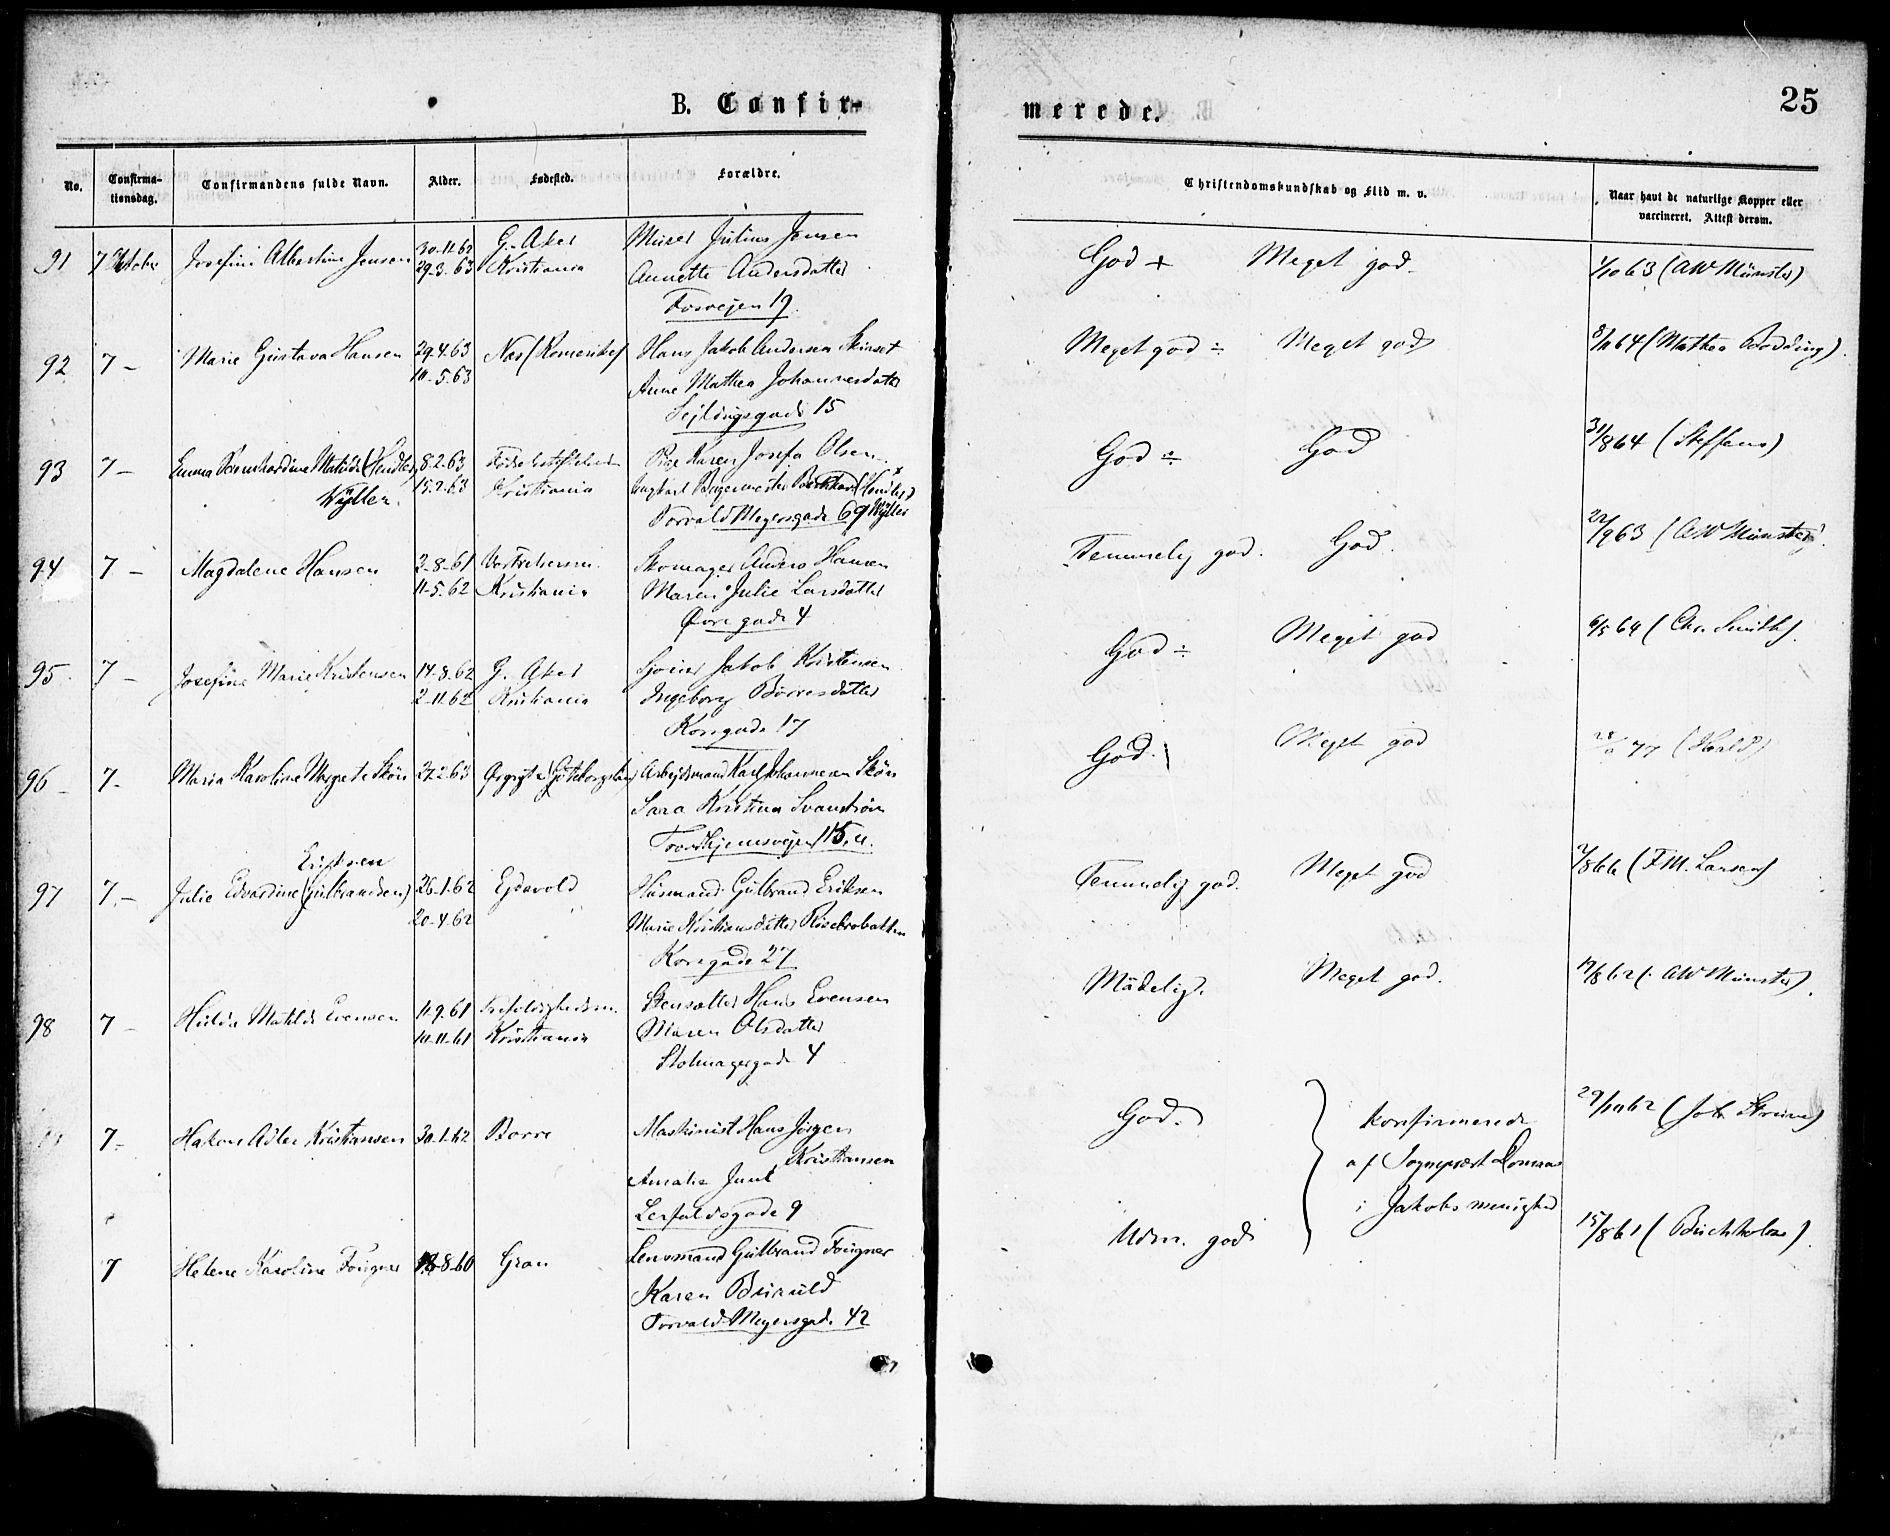 B. Confir-
merede.
25
No.
Confirma-
tionsdag.
Confirmandens fulde Navn.
Alder.
Fødested.
Forældre.
Christendomskundskab og Flid m. v.
Naar havt de naturlige Kopper eller
vaccineret. Attest derom.
91 7 Oktober Josefine Albertine Jensen 30-11-62 G. Aker Murer Julius Jensen God + Meget god. 1/10 63 (AW Münster)
29-3-63 Kristiania Annette Andersdatter
Fosvejen 19
92 7 - Marie Gustava Hansen 29-4-63 Nes (Romerike) Hans Jakob Andersen Skinset Meget god ÷ Meget god 64 (Mathea Bodding).
10-5-63 Anne Mathea Johannesdatter
Sejldugsgade 15
93 7 - Emma Bernhardine Matilde (Hendler) 8-2-63 Fødselsstiftelsen Pige Karen Josefa Olsen. God ÷ God 31/8 64 (Steffens)
Wyller. 15-2-63 Kristiania Ungkarl Bagermester Wyller
Torvald Meyersgade 69
94 7 - Magdalene Hansen 2-8-61 Skomager Anders Hansen Temmelig god. God. 22/9 63 (AW Münster).
11-5-62 Kristiania Maren Julie Larsdatter
Øvregade 4
95 7 - Josefine Marie Kristensen 14-8-62 G. Aker Jakob Kristensen God ÷ Meget god 6/5 64 (Chr. Smith).
2-11-62 Kristiania Ingeborg Børresdatter
Korsgade 17
96 7 - Maria Karoline Margrete Skön 27-2-63 Ørgryte (Göteborgslän) Arbejdsmand Karl Johannesen Skön God. Meget god 77
Sara Kristina Svanström
Trondhjemsvejen 115, u.
Eriksen
97 7. - Julie Edvardine (Gulbrandsen) 26-1-62 Ejdsvold Husmand Gulbrand Eriksen Temmelig god. Meget god 7/8 66 (F M. Larsen)
20-4-62 Marie Kristiansdatter
Korsgade 27
98 7 - Hulda Matilde Evensen 11-9-61 Trefoldighedsm. Stensætter Hans Evensen Mådelig. Meget god. 19/8 62 (AW Münster).
10-11-61 Kristiania Maren Olsdatter
Stolmagergade 4
7 - Hakon Adler Kristiansen 30-1-62 Borre Maskinist Hans Jørgen God. Konfirmerede 29/10 62
Kristiansen
Amalie Juul af Sogneprest
Lerfaldsgade 9 i Jakobs menighed
7 Helene Karoline Fougner 18-8-60 Gran Lensmand Gulbrand Fougner Udm. god 15/8 61 (Buchholm).
Karen
Torvald Meyersgade 42